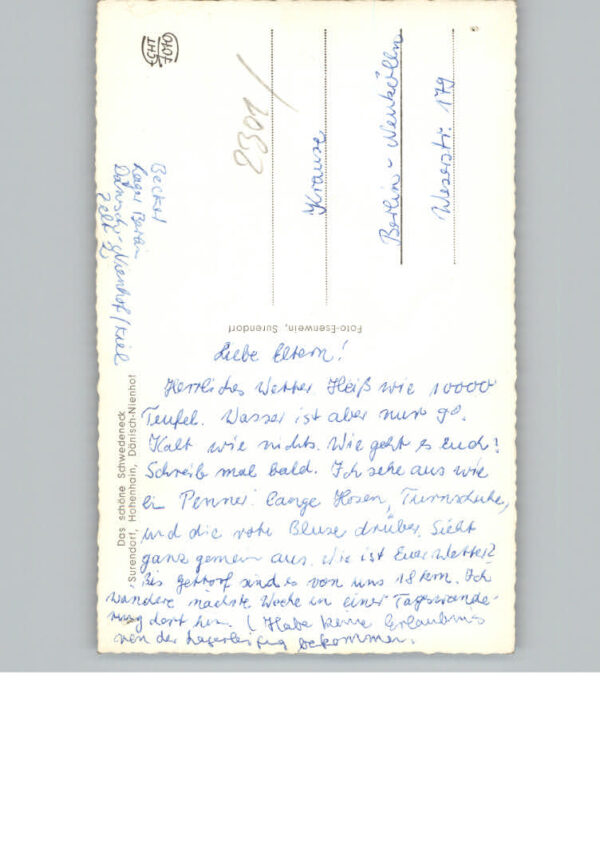 Liebe Eltern!
Herrliches Wetter. Heiß wie 10000
Teufel. Wasser ist aber nur 9°.
Kalt wie nichts. Wie geht es Euch?
Schreib mal bald. Ich sehe aus wie
ein Penner. Lange Hosen, Turnschuhe,
und die rote Bluse drüber. Sieht
ganz gemein aus. Wie ist Euer Wetter?
Bis Gettorf sind es von uns 18 km. Ich
wandere nächste Woche in einer Tageswande-
rung dort hin. (Habe keine Erlaubnis
von der Lagerleitung bekommen.
Das schöne Schwedeneck
Surendorf, Hohenhain, Dänisch-Nienhof
Foto-Esenwein, Surendorf
Lager Berlin
Dänisch-Nienhof/Kiel
Zelt 2
ECHT
FOTO
2301/
Krause
Berlin-Neukölln
Weserstr. 179